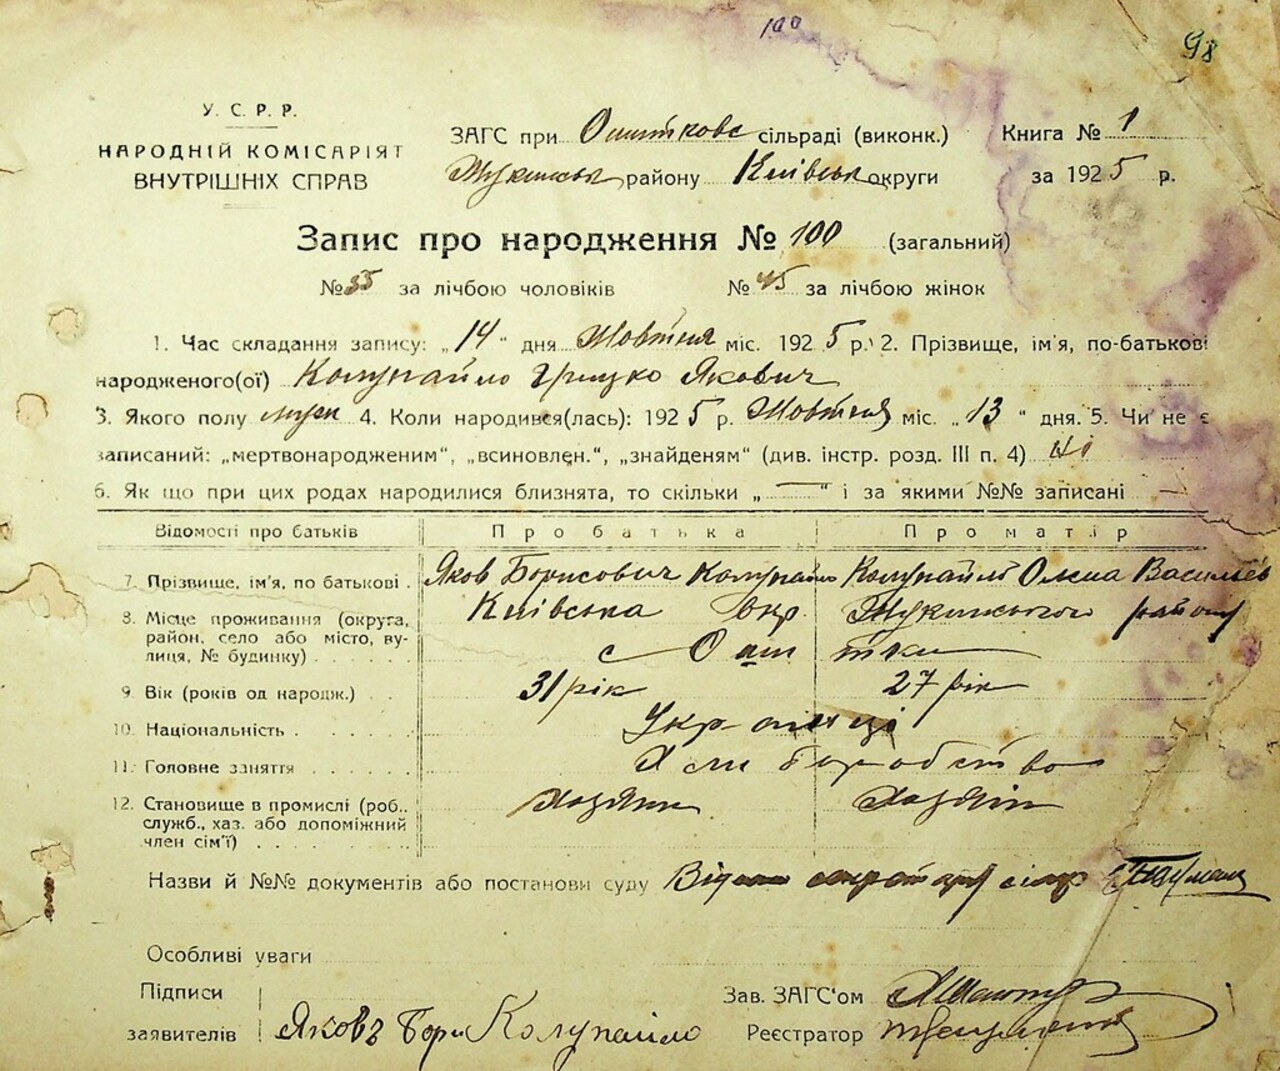 100
98
У. С. Р. Р.
НАРОДНІЙ КОМІСАРІЯТ
ВНУТРІШНІХ СПРАВ
ЗАГС при Ошиткове сільраді (виконк.)
Жукинськ району Київськ округи
Книга № 1
за 1925 р.
Запис про народження № 100 (загальний)
№ 55 за лічбою чоловіків № 45 за лічбою жінок
1. Час складання запису: „14" дня Жовтня міс. 1925 р. 2. Прізвище, ім'я, по-батькові
народженого(ої) Колупайло Грицко Якович
3. Якого полу муж 4. Коли народився(лась): 1925 р. Жовтня міс. „13" дня. 5. Чи не є
записаний: „мертвонародженим", „всиновлен.", „знайденям" (див. інстр. розд. III п. 4) ні
6. Як що при цих родах народилися близнята, то скільки „—" і за якими №№ записані —
Відомості про батьків Про батька Про матір
7. Прізвище, ім'я, по батькові . Яков Борисович Колупайло Колупайло Олена Васильев
8. Місце проживання (округа, Київська окр. Жукинського району
район, село або місто, ву- с Ошитки
лиця, № будинку)
9. Вік (років од народж.) . . 31 рік 27 рік
10. Національність . . . . . . Українці
11. Головне заняття . . . . . . Хлиборобство
12. Становище в промислі (роб., Хозяін Хозяін
служб., хаз. або допоміжний
член сім'ї) . . . . . . . .
Назви й №№ документів або постанови суду секретар сільр
Особливі уваги
Підписи
заявителів Яковъ Бори Колупайло
Зав. ЗАГС'ом
Реєстратор